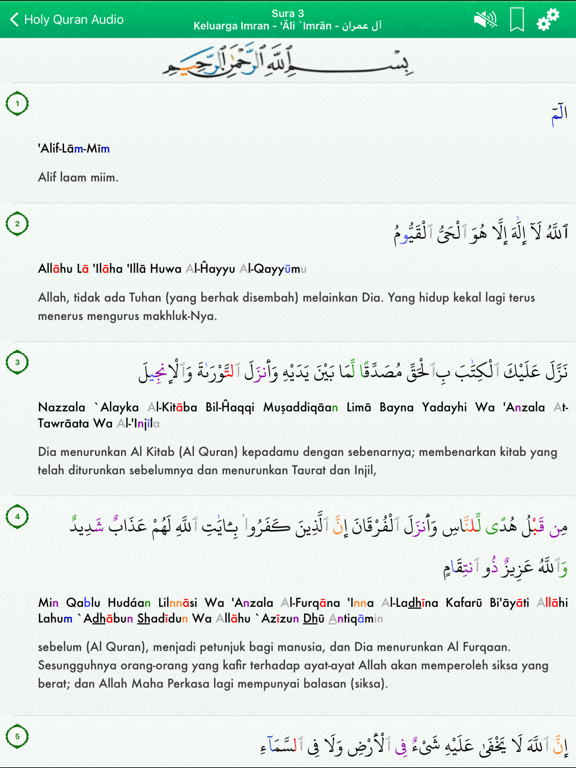 Holy Quran Audio
Sura 3
Keluarga Imran - 'Āli `Imrān - آل عمران
بِسْمِ ٱللَّهِ ٱلرَّحْمَٰنِ ٱلرَّحِيمِ
1
الٓمٓ
'Alif-Lām-Mīm
Alif laam miim.
2
ٱللَّهُ لَآ إِلَٰهَ إِلَّا هُوَ ٱلْحَىُّ ٱلْقَيُّومُ
Allāhu Lā 'Ilāha 'Illā Huwa Al-Ĥayyu Al-Qayyūmu
Allah, tidak ada Tuhan (yang berhak disembah) melainkan Dia. Yang hidup kekal lagi terus
menerus mengurus makhluk-Nya.
3
نَزَّلَ عَلَيْكَ ٱلْكِتَٰبَ بِٱلْحَقِّ مُصَدِّقًا لِّمَا بَيْنَ يَدَيْهِ وَأَنزَلَ ٱلتَّوْرَىٰةَ وَٱلْإِنجِيلَ
Nazzala `Alayka Al-Kitāba Bil-Ĥaqqi Muşaddiqāan Limā Bayna Yadayhi Wa 'Anzala At-
Tawrāata Wa Al-'Injīla
Dia menurunkan Al Kitab (Al Quran) kepadamu dengan sebenarnya; membenarkan kitab yang
telah diturunkan sebelumnya dan menurunkan Taurat dan Injil,
4
مِن قَبْلُ هُدًى لِّلنَّاسِ وَأَنزَلَ ٱلْفُرْقَانَ إِنَّ ٱلَّذِينَ كَفَرُوا۟ بِـَٔايَٰتِ ٱللَّهِ لَهُمْ عَذَابٌ شَدِيدٌ
وَٱللَّهُ عَزِيزٌ ذُو ٱنتِقَامٍ
Min Qablu Hudáan Lilnnāsi Wa 'Anzala Al-Furqāna 'Inna Al-Ladhīna Kafarū Bi'āyāti Allāhi
Lahum `Adhābun Shadīdun Wa Allāhu `Azīzun Dhū Antiqāmin
sebelum (Al Quran), menjadi petunjuk bagi manusia, dan Dia menurunkan Al Furqaan.
Sesungguhnya orang-orang yang kafir terhadap ayat-ayat Allah akan memperoleh siksa yang
berat; dan Allah Maha Perkasa lagi mempunyai balasan (siksa).
5
إِنَّ ٱللَّهَ لَا يَخْفَىٰ عَلَيْهِ شَىْءٌ فِى ٱلْأَرْضِ وَلَا فِى ٱلسَّمَآءِ